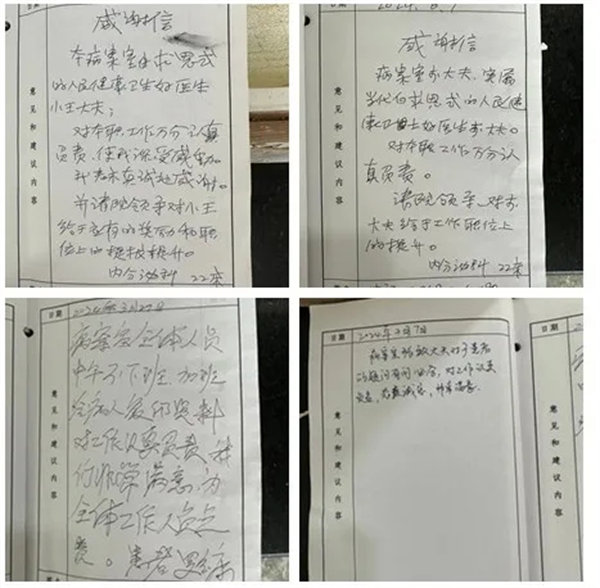 感谢信
本病案室的白求恩式
的人民健康卫生好医生
小王大夫：
对本职工作万分认真
负责，使我深受感动。
我表示真诚地感谢。
并请院领导对小王
给于应有的奖励和职
位上的提拔提升。
内分泌科 22床
意见和建议内容
日期
感谢信
病案室 大夫，实属
当代白求恩式的人民健
康卫士好医生 大夫。
对本职工作万分认
真负责。
请院领导 对
大夫给于工作职位上
的提升。
内分泌科 22床
意见和建议内容
日期 2024年3月27日
病案室全体人员
中午不下班，加班
给病人复印资料
对工作认真负责，我
们非常满意，为
全体工作人员点
赞。患者
意见和建议内容
日期 2024年 月7日
病案 大夫对于患者
的疑问有问必答，对工作认真
负责，态度 ，非常满意。
意见和建议内容